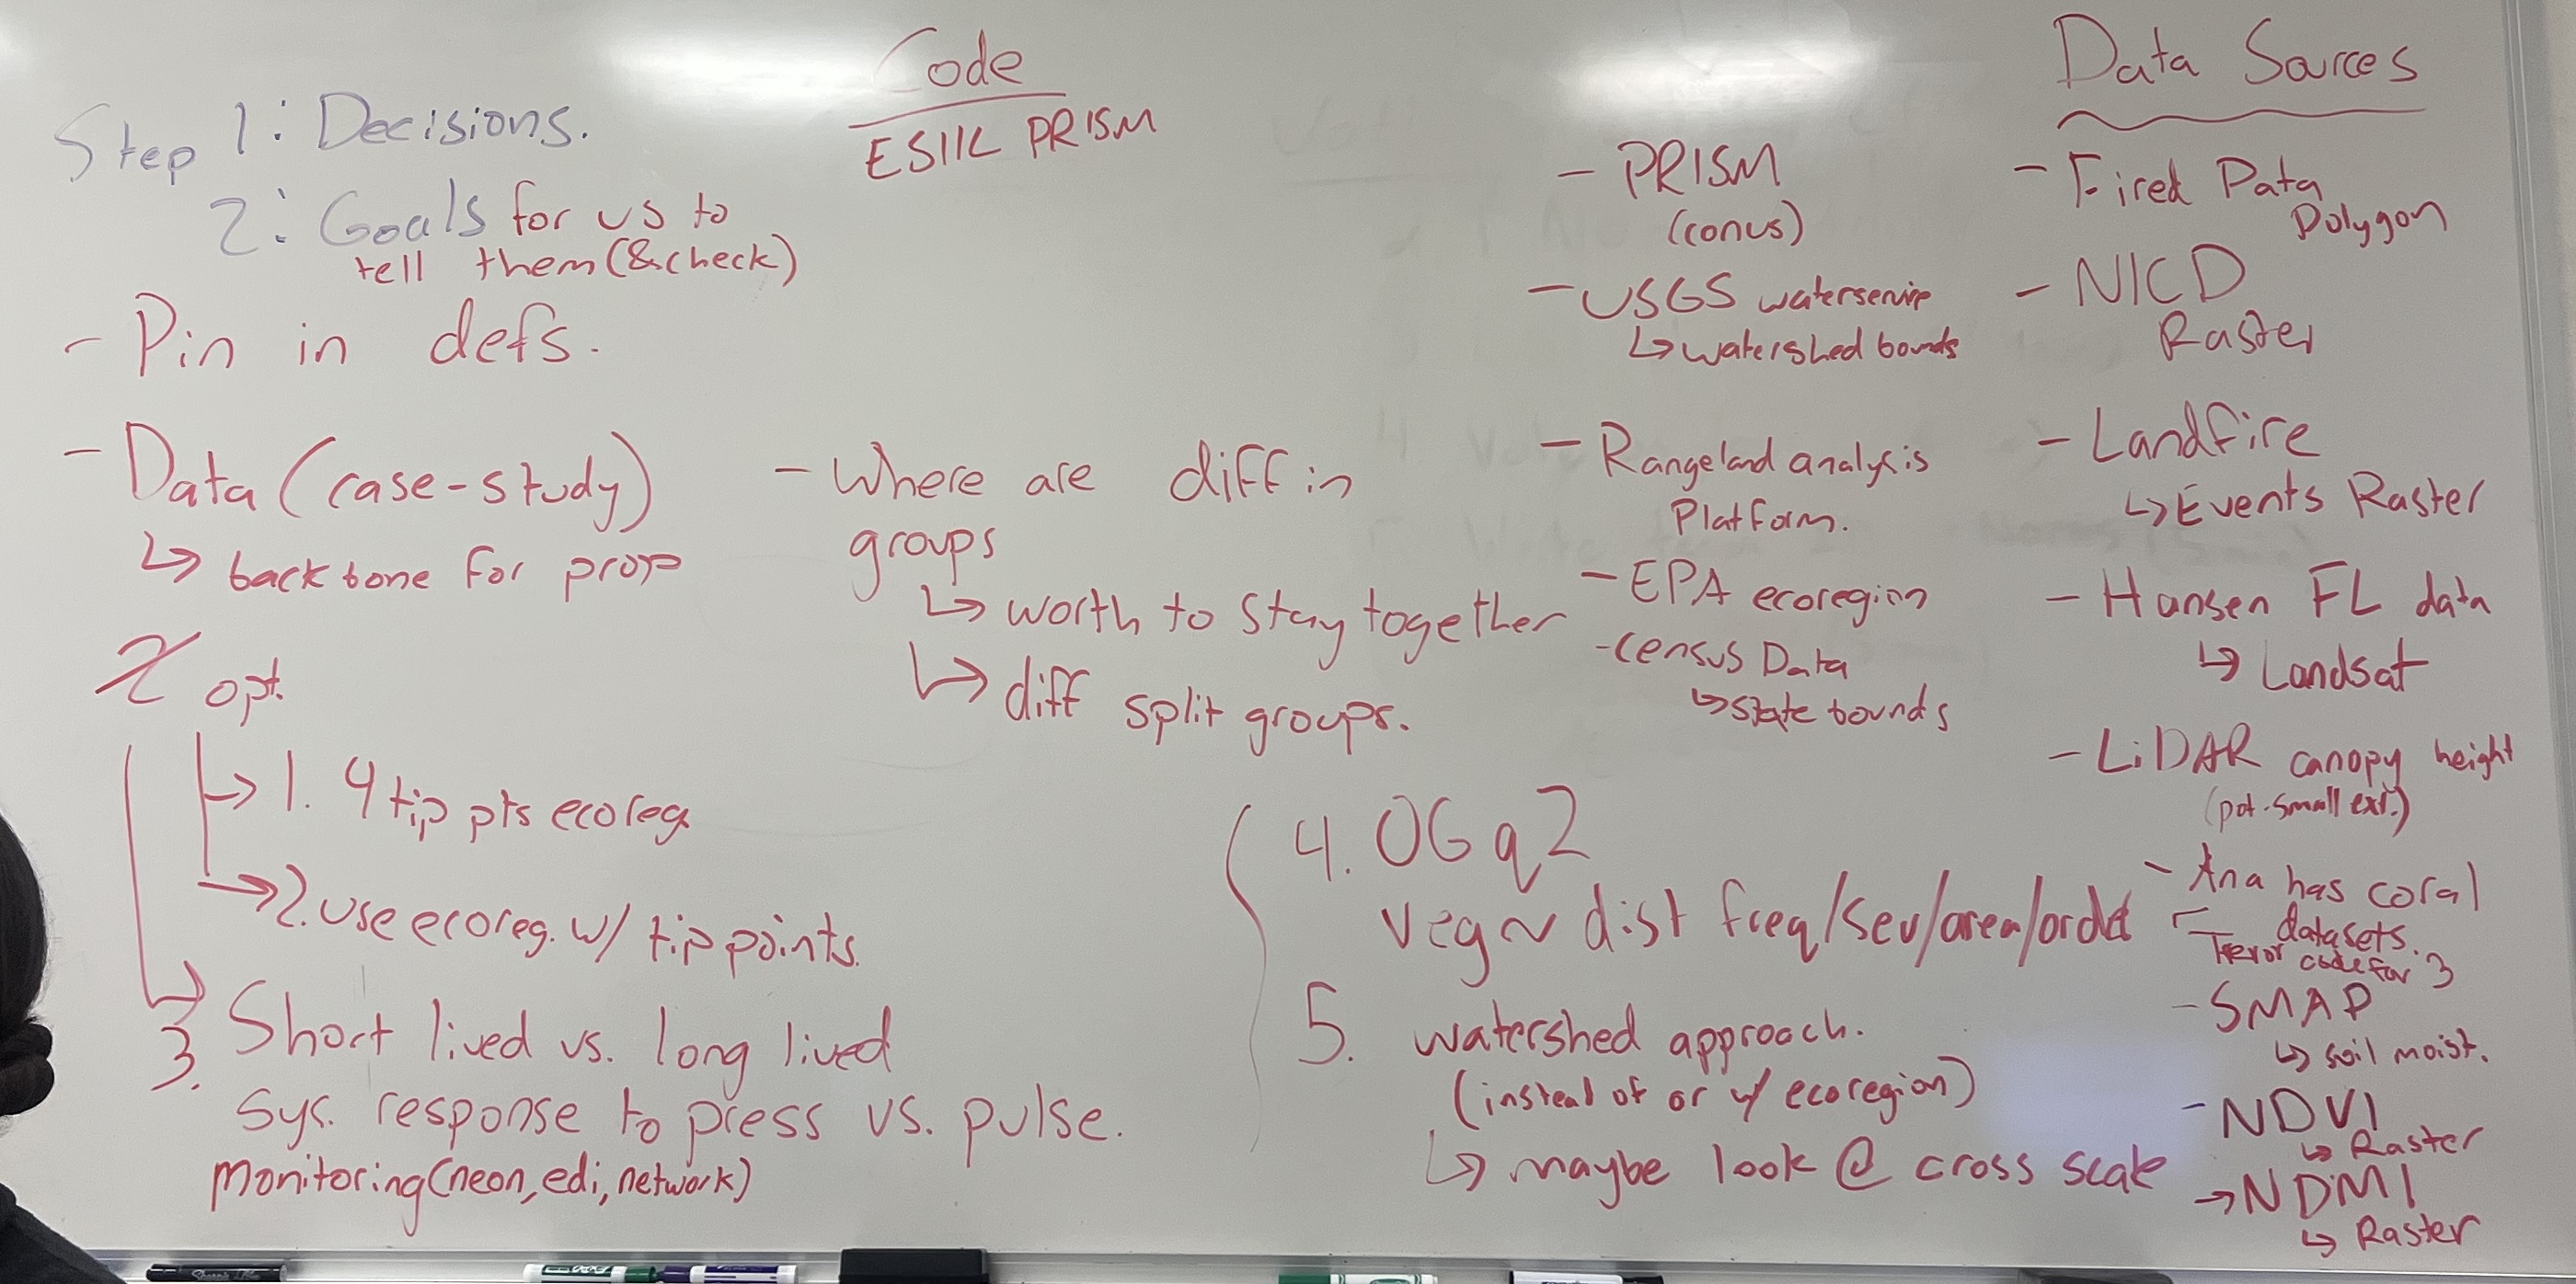 Step 1: Decisions.
2: Goals for us to
tell them (& check)
- Pin in defs.
- Data (case-study)
↳ backbone for prop
2 opt.
→ 1. 4 tip pts ecoreg.
→ 2. use ecoreg. w/ tip points.
3. Short lived vs. long lived
sys. response to press vs. pulse.
monitoring (neon, edi, network)
Code
ESIIL PRISM
- Where are diff in
groups
↳ worth to stay together
↳ diff split groups.
4. OG q2
veg ~ dist freq/sev/area/order
5. watershed approach.
(instead of or w/ ecoregion)
↳ maybe look @ cross scale
Data Sources
- PRISM
(conus)
- USGS waterservice
↳ watershed bounds
- Rangeland analysis
Platform.
- EPA ecoregion
- Census Data
↳ state bounds
- Fired Data
Polygon
- NLCD
Raster
- Landfire
↳ Events Raster
- Hansen FL data
↳ Landsat
- LiDAR canopy height
(pot. small ext.)
- Ana has coral
datasets.
- Trevor code for 3
- SMAP
↳ soil moist.
- NDVI
↳ Raster
→ NDMI
↳ Raster
Sharpie